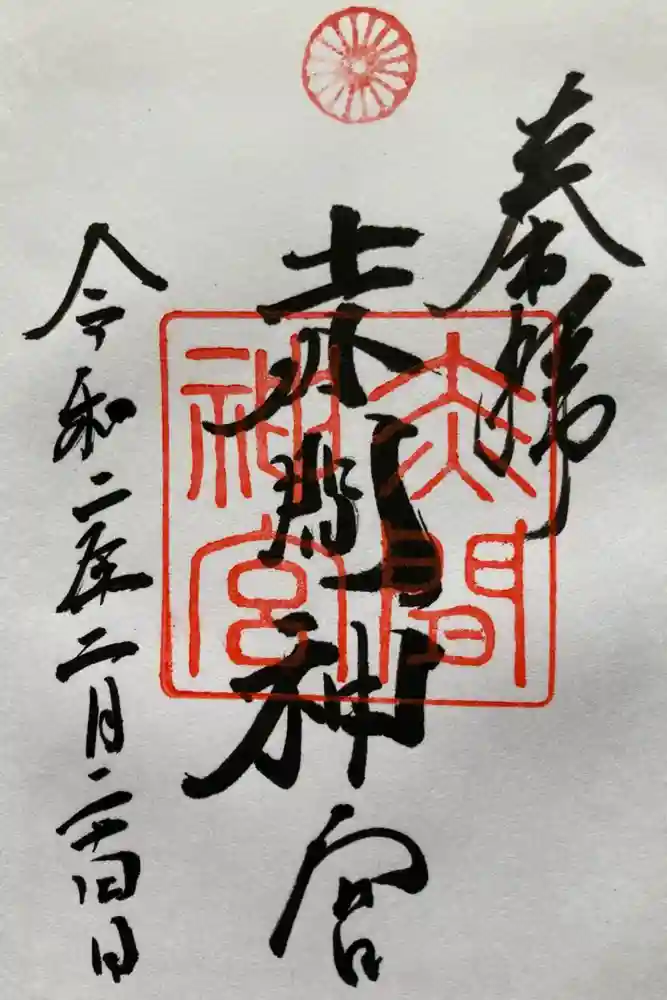 奉拝
赤間神宮
赤間
神宮
令和二年二月二十四日